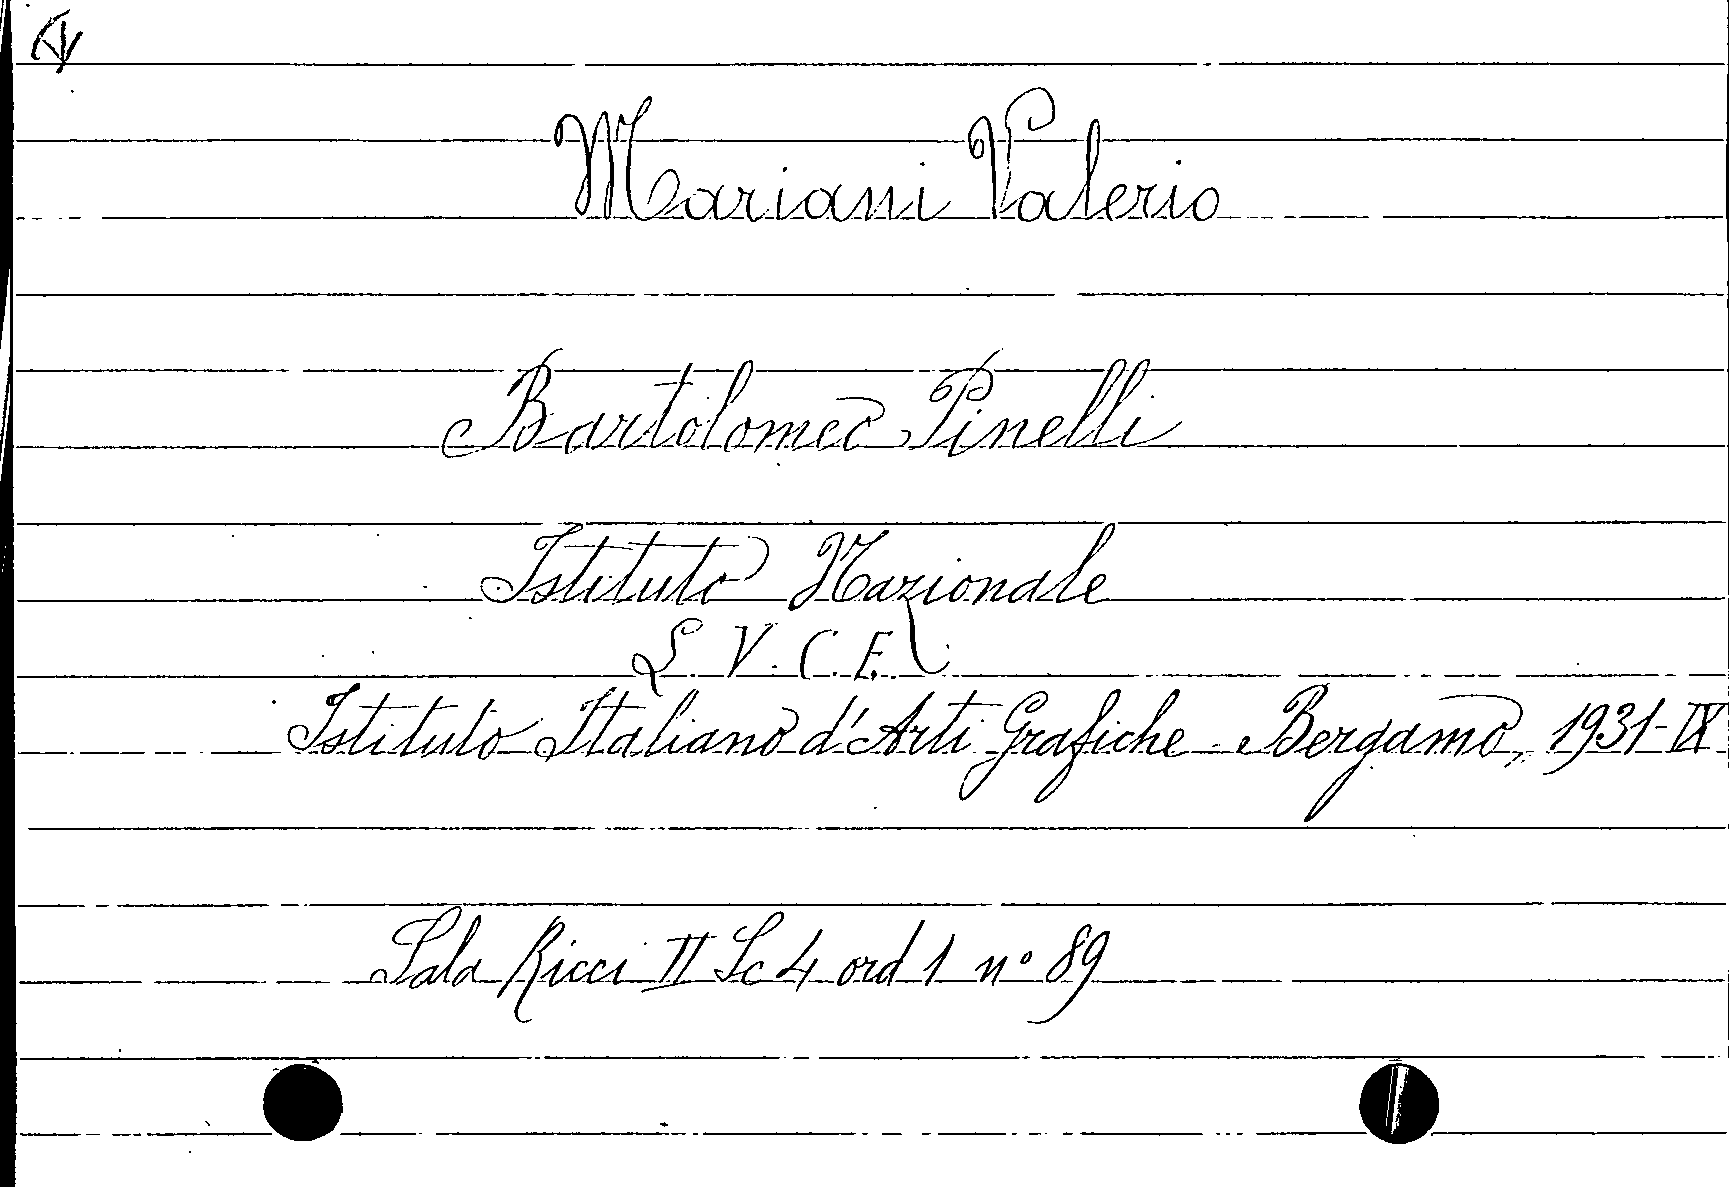 Mariani Valerio
Bartolomeo Pinelli
Istituto Nazionale
L. V. C. E.
Istituto Italiano d'Arti Grafiche - Bergamo, 1931-IX
Sala Ricci II Sc 4 ord 1 n° 89